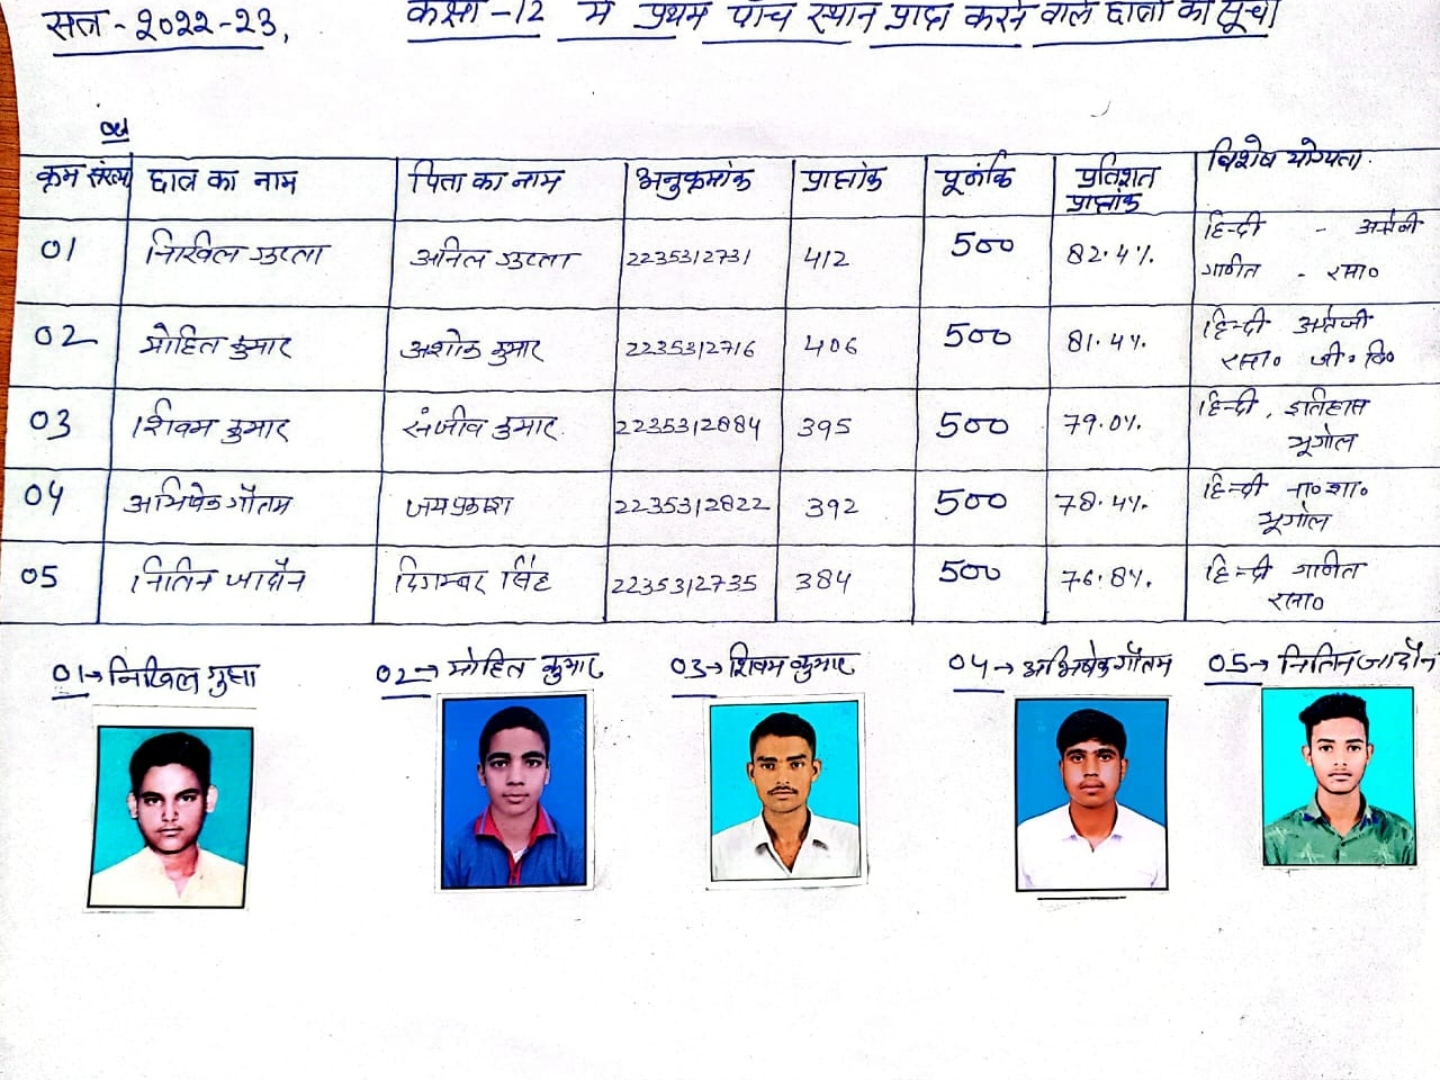 सत्र - 2022-23, कक्षा -12 में प्रथम पाँच स्थान प्राप्त करने वाले छात्रों की सूची
क्रम संख्या छात्र का नाम पिता का नाम अनुक्रमांक प्राप्तांक पूर्णांक प्रतिशत प्राप्तांक विशेष योग्यता
01 निखिल गुप्ता अनिल गुप्ता 2235312731 412 500 82.4% हिन्दी - अंग्रेजी
गणित - रसा०
02 मोहित कुमार अशोक कुमार 2235312716 406 500 81.4% हिन्दी अंग्रेजी
रसा० जी० वि०
03 शिवम कुमार संजीव कुमार 2235312884 395 500 79.0% हिन्दी, इतिहास
भूगोल
04 अभिषेक गौतम जयप्रकाश 2235312822 392 500 78.4% हिन्दी ना० शा०
भूगोल
05 नितिन जादौन दिगम्बर सिंह 2235312735 384 500 76.8% हिन्दी गणित
रसा०
01→ निखिल गुप्ता 02→ मोहित कुमार 03→ शिवम कुमार 04→ अभिषेक गौतम 05→ नितिन जादौन